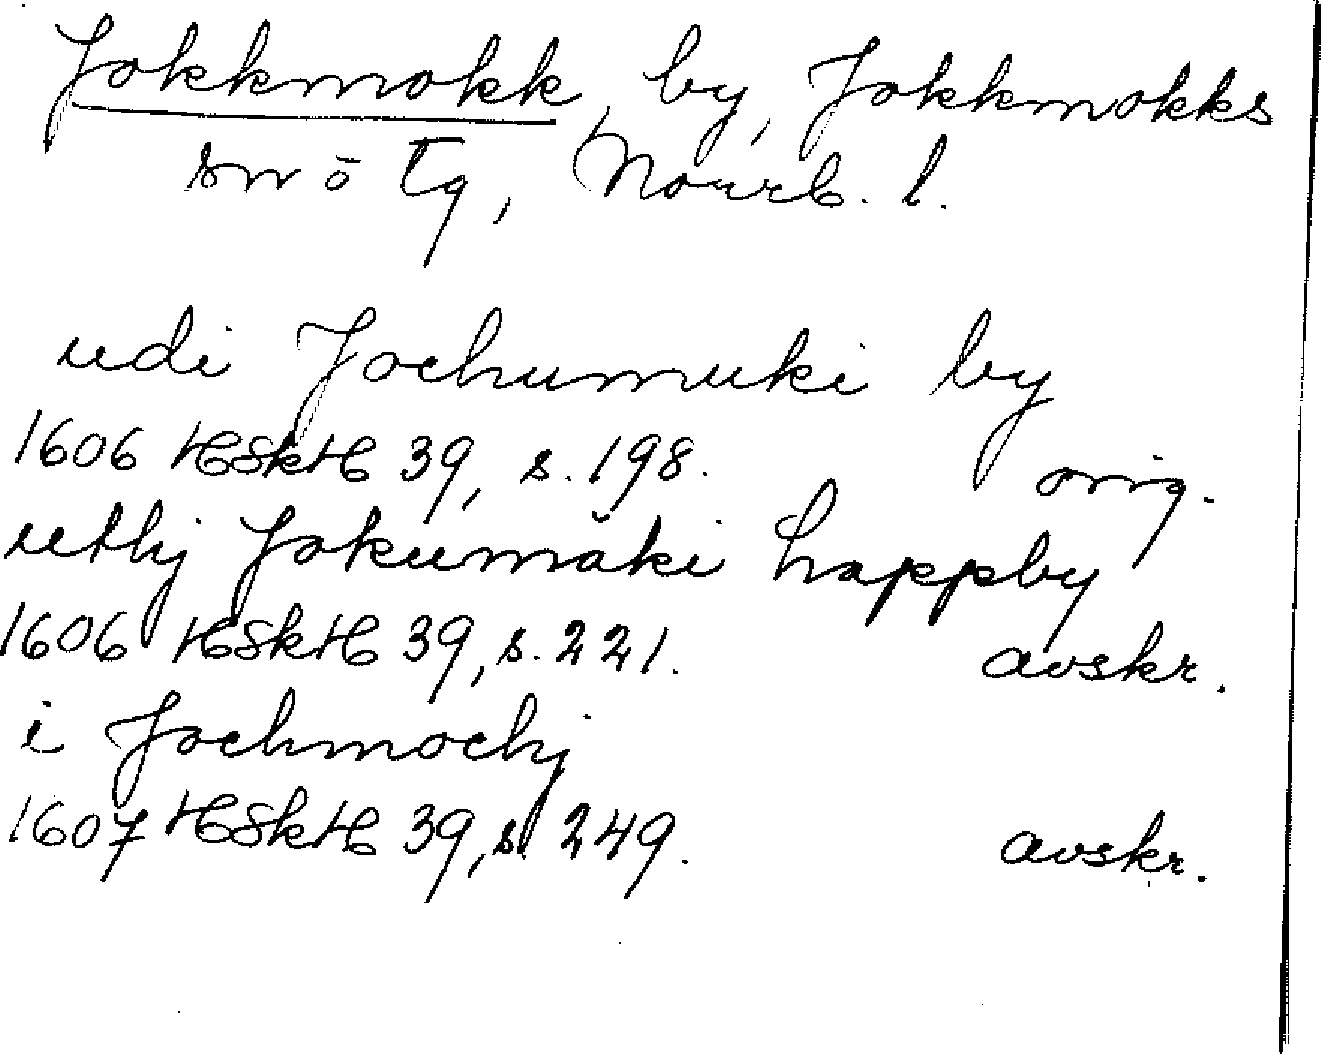 Jokkmokk, by, Jokkmokks
sn o tg, Norrb. l.
udi Jochumuki by
1606 HSkH 39, s. 198. orig.
uthj Jokumäki Lappby
1606 HSkH 39, s. 221. avskr.
i Jochmochj
1607 HSkH 39, s. 249. avskr.